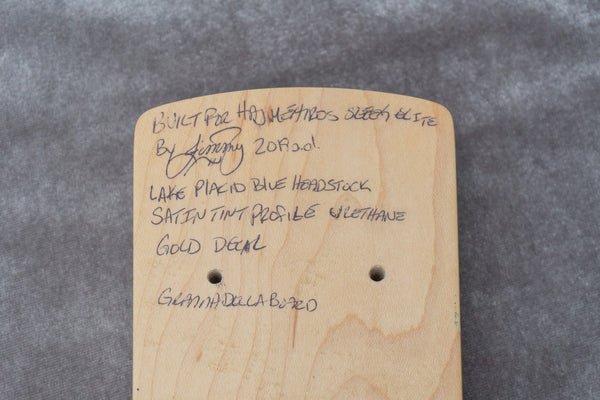 BUILT FOR HAJMEHROS GREEK ELITE
By Jimmy 20 A.D.
LAKE PLACID BLUE HEADSTOCK
SATIN TINT PROFILE URETHANE
GOLD DECAL
GRANADILLA BOARD